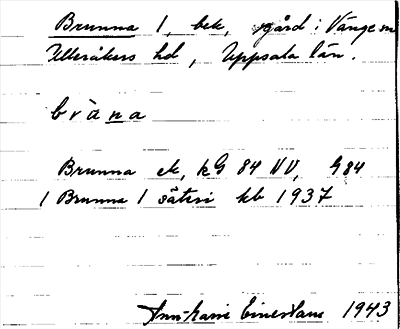 Brunna 1, bek, gård i Vänge sn
Ulleråkers hd, Uppsala län.
bràna
Brunna ek, kG 84 NV, G84
/ Brunna 1 säteri kb 1937
Ann-Marie Einarsson 1943